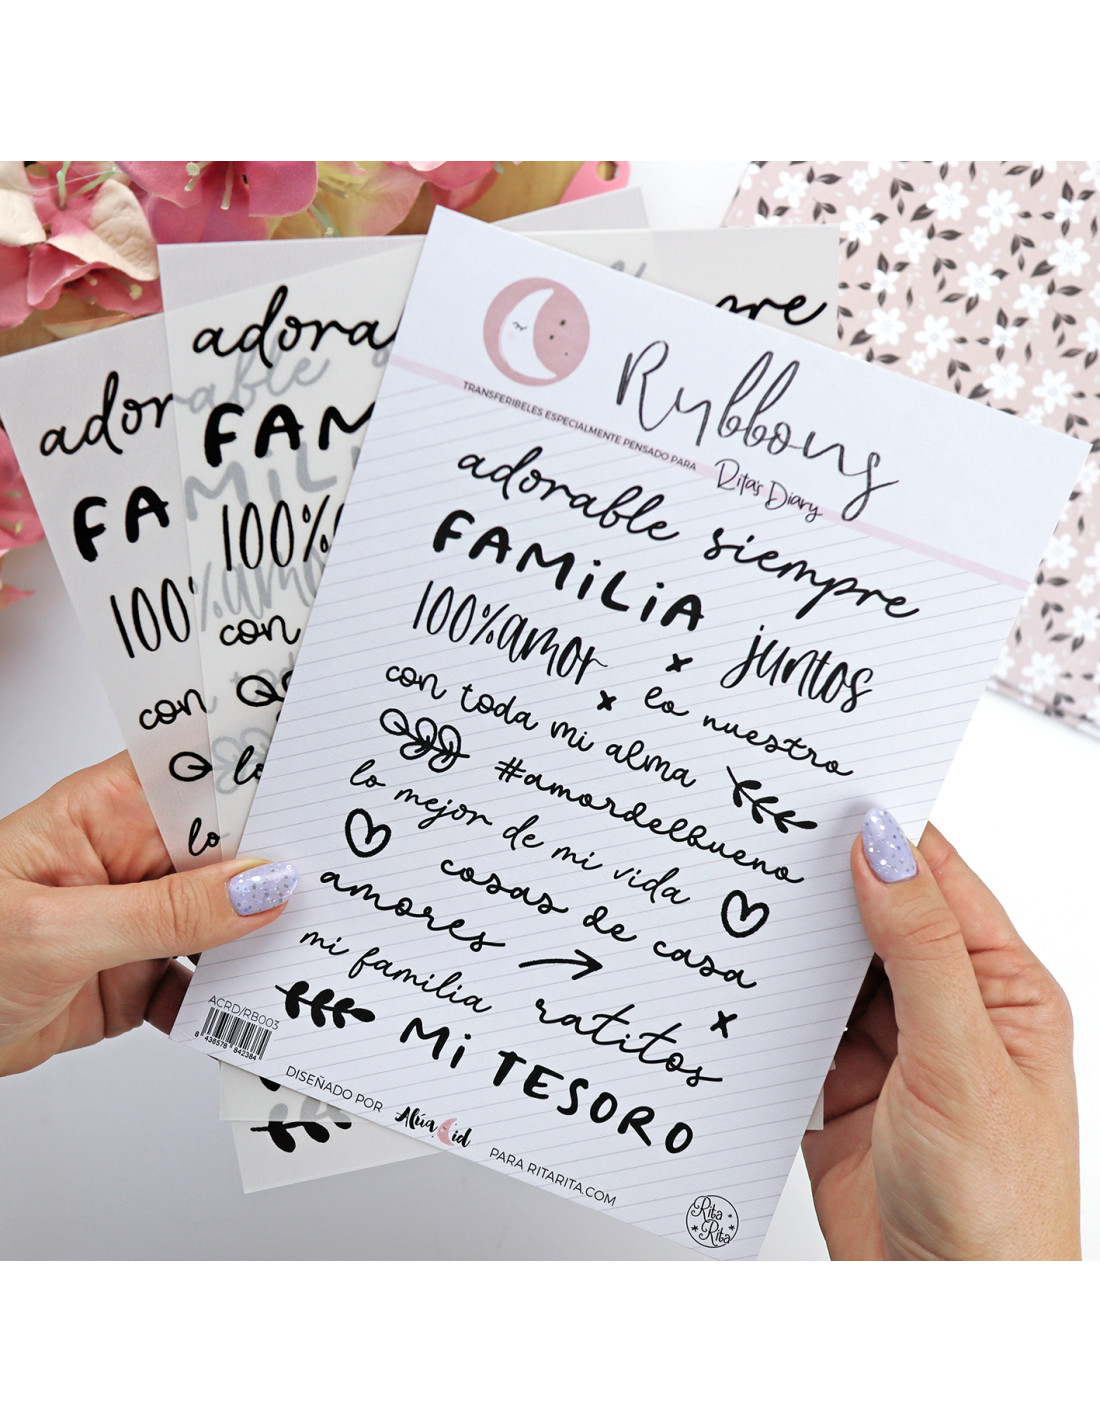 Rybbons
TRANSFERIBELES ESPECIALMENTE PENSADO PARA
Rita's Diary
adorable siempre
FAMiLiA
100%amor x juntos
con toda mi alma x eo nuestro
#amordelbueno
lo mejor de mi vida
cosas de casa
amores
mi familia ratitos x
Mi TESORO
ACRD/RB003
8 436578 842384
DISEÑADO POR
Alúa Cid
PARA RITARITA.COM
Rita Rita
adora
FAM
100%
con
lo
ador
FA
100
con
lo
pre